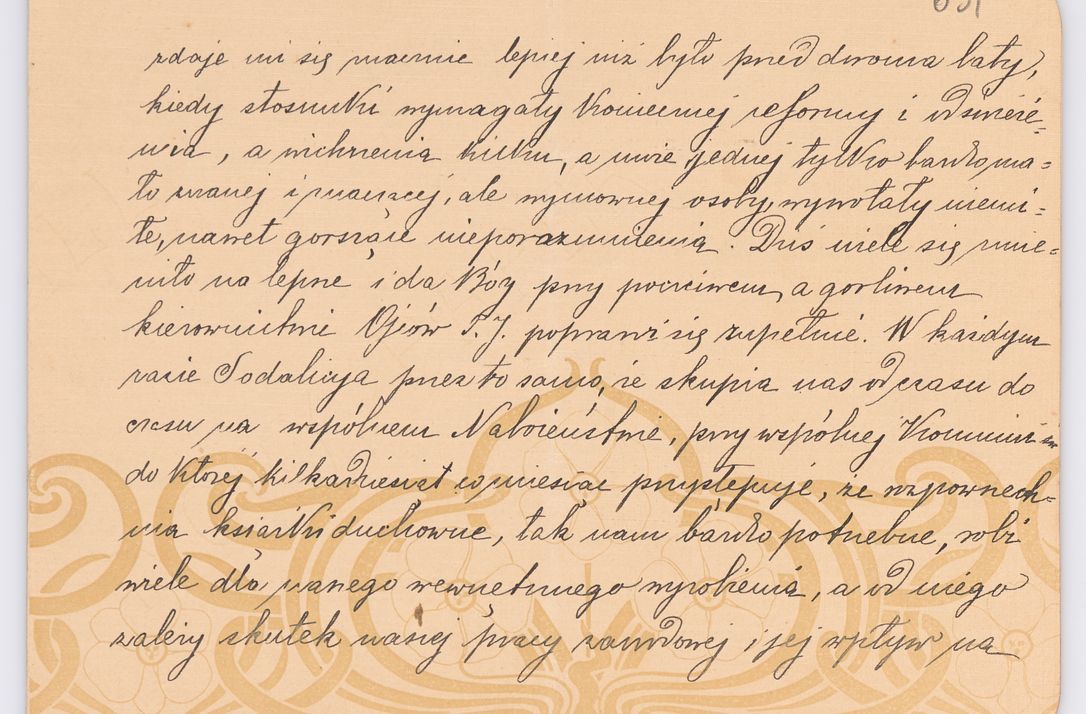 zdaje mi się znacznie lepiej niż było przed dwoma laty,
kiedy stosunki wymagały koniecznej reformy i odświeże-
nia, a wichrzenia kilku, a może jednej tylko bardzo ma-
ło znanej i znaczącej, ale wymownej osoby, wywołały niemi-
łe, nawet gorszące nieporozumienia. Dziś wiele się zmie-
niło na lepsze i da Bóg przy poczciwem, a gorliwem
kierownictwie Ojców T.J. poprawi się zupełnie. W każdym
razie Sodalicya przez to samo, że skupia nas od czasu do
czasu na wspólnem Nabożeństwie, przy wspólnej Kommunii
do której kilkadziesiąt co miesiąc przystępuje, że rozpowszech-
nia książki duchowne, tak nam bardzo potrzebne, robi
wiele dla naszego wewnętrznego wyrobienia, a od niego
zależy skutek naszej pracy zawodowej i jej wpływ na